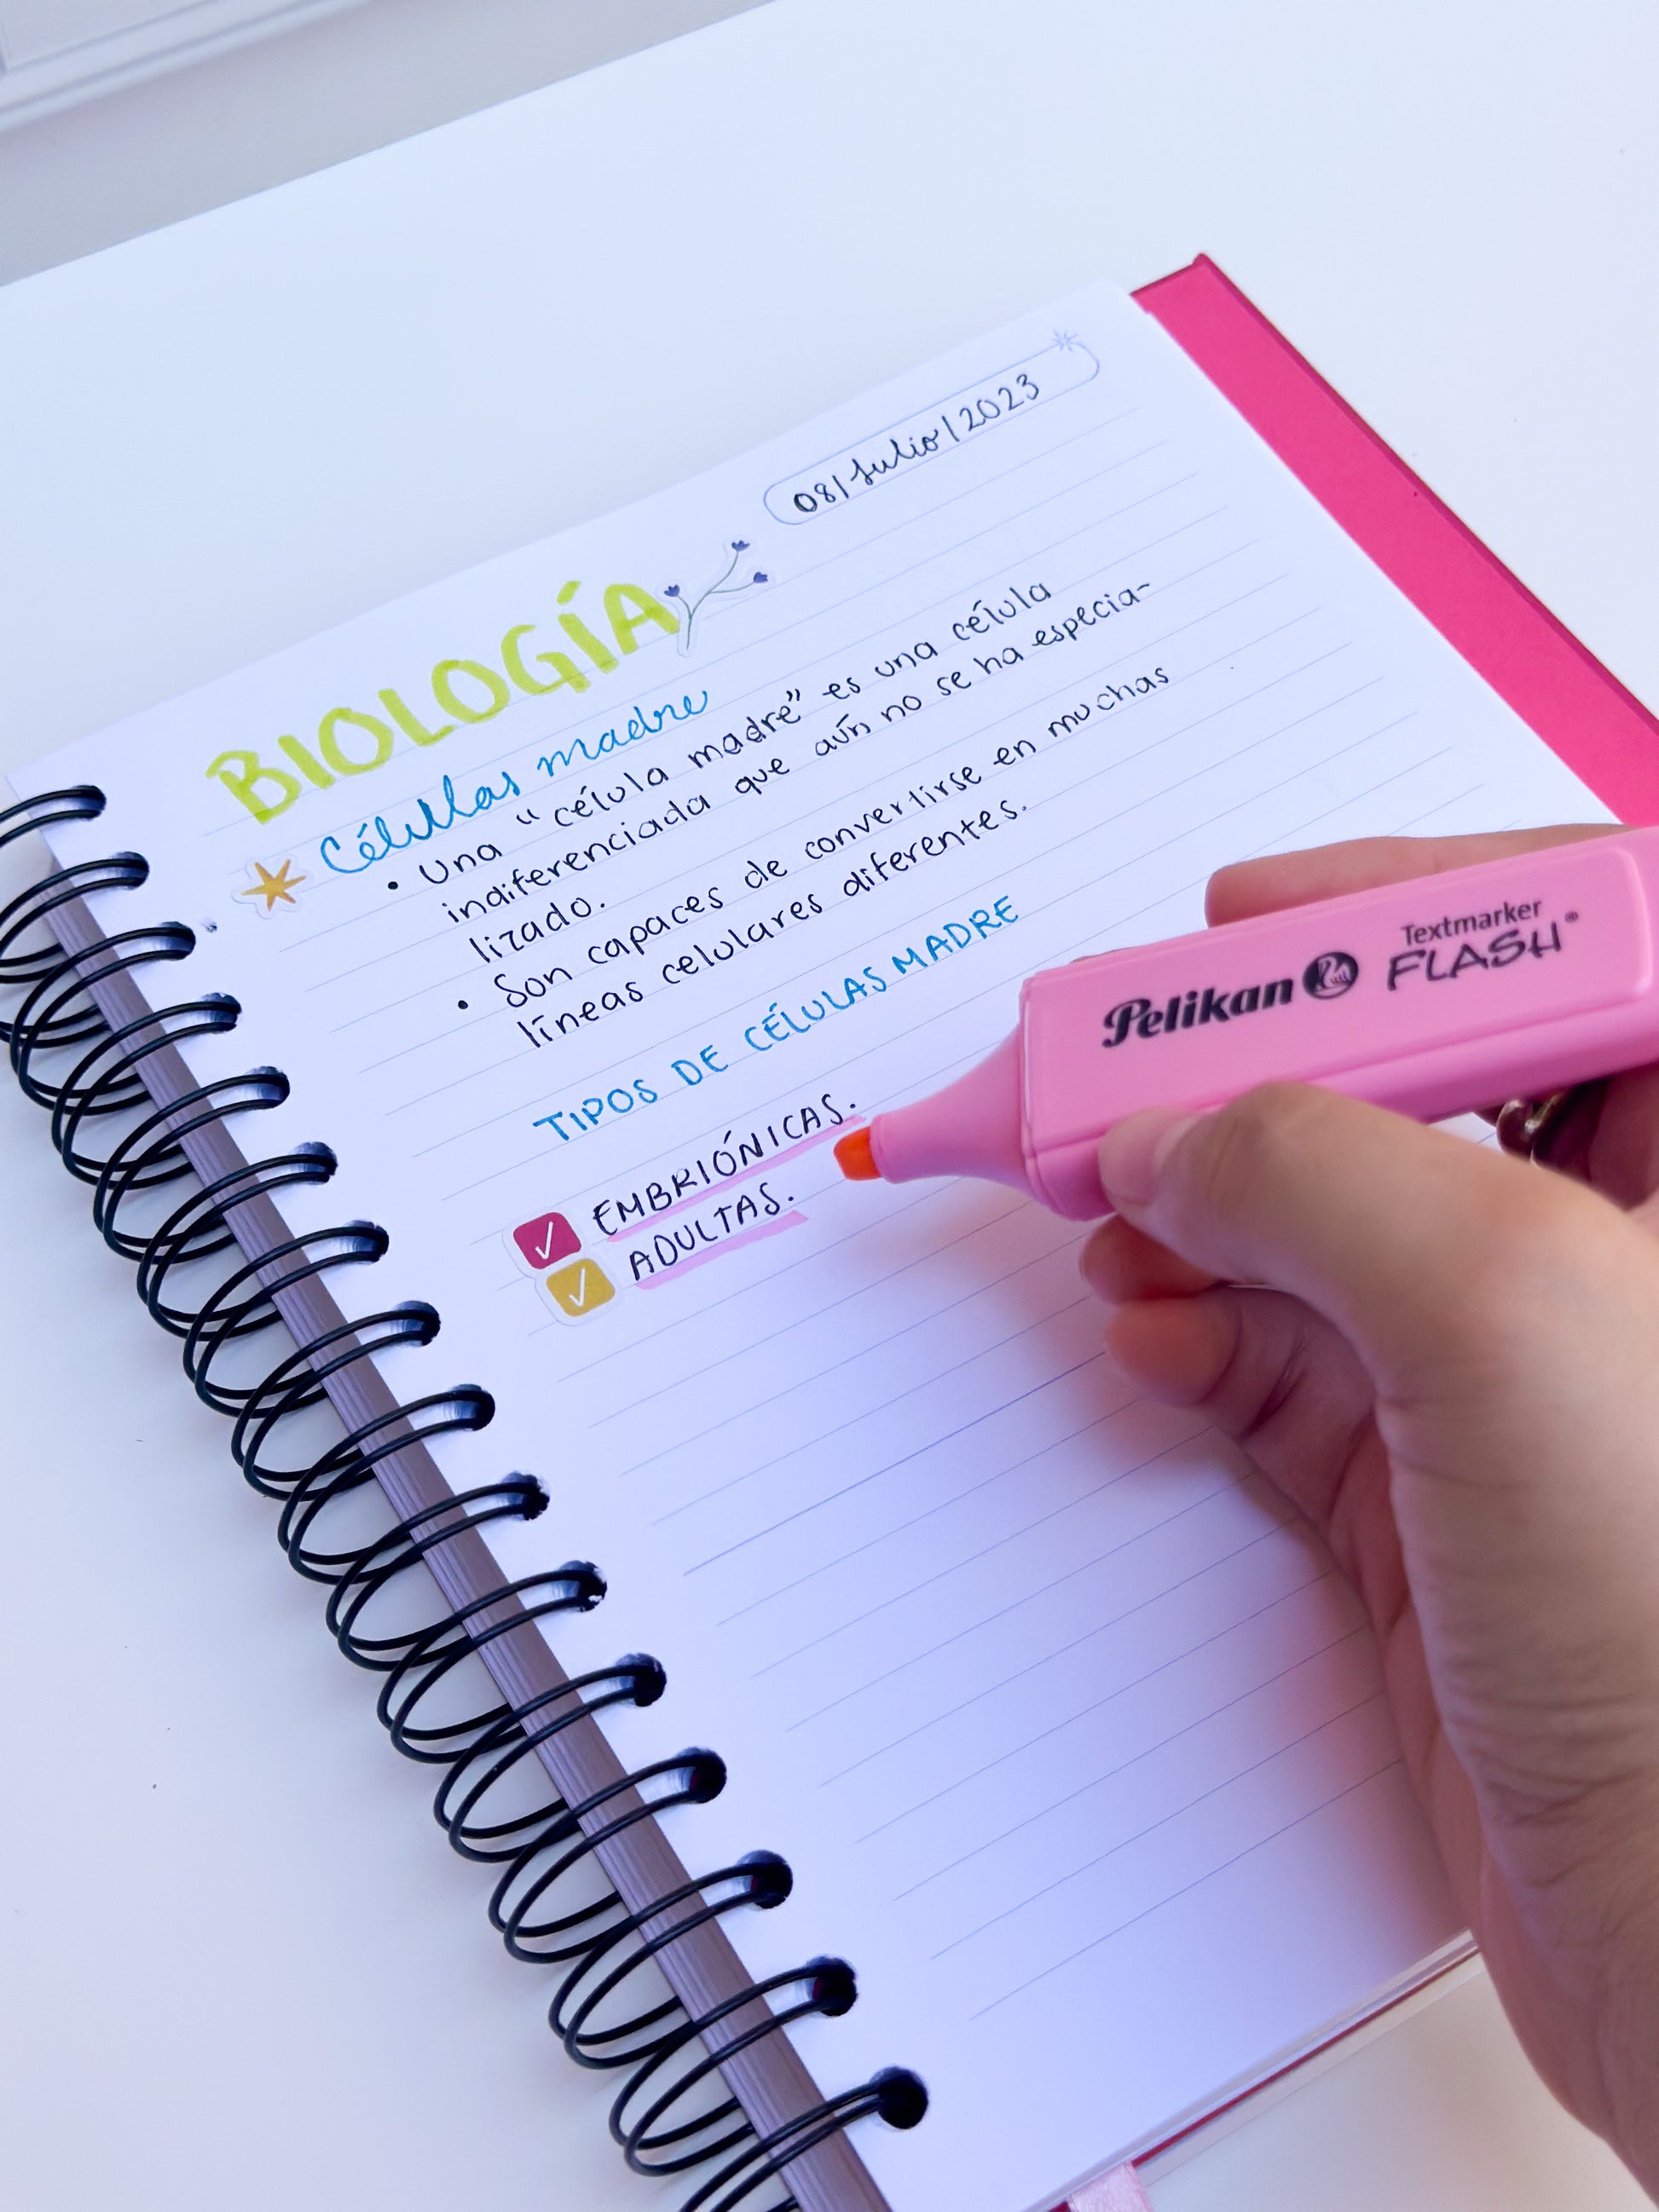 08/Julio/2023
BIOLOGÍA
Células madre
• Una "célula madre" es una célula
indiferenciada que aún no se ha especia-
lizado.
• Son capaces de convertirse en muchas
líneas celulares diferentes.
TIPOS DE CÉLULAS MADRE
EMBRIÓNICAS.
ADULTAS.
Pelikan
Textmarker
FLASH®